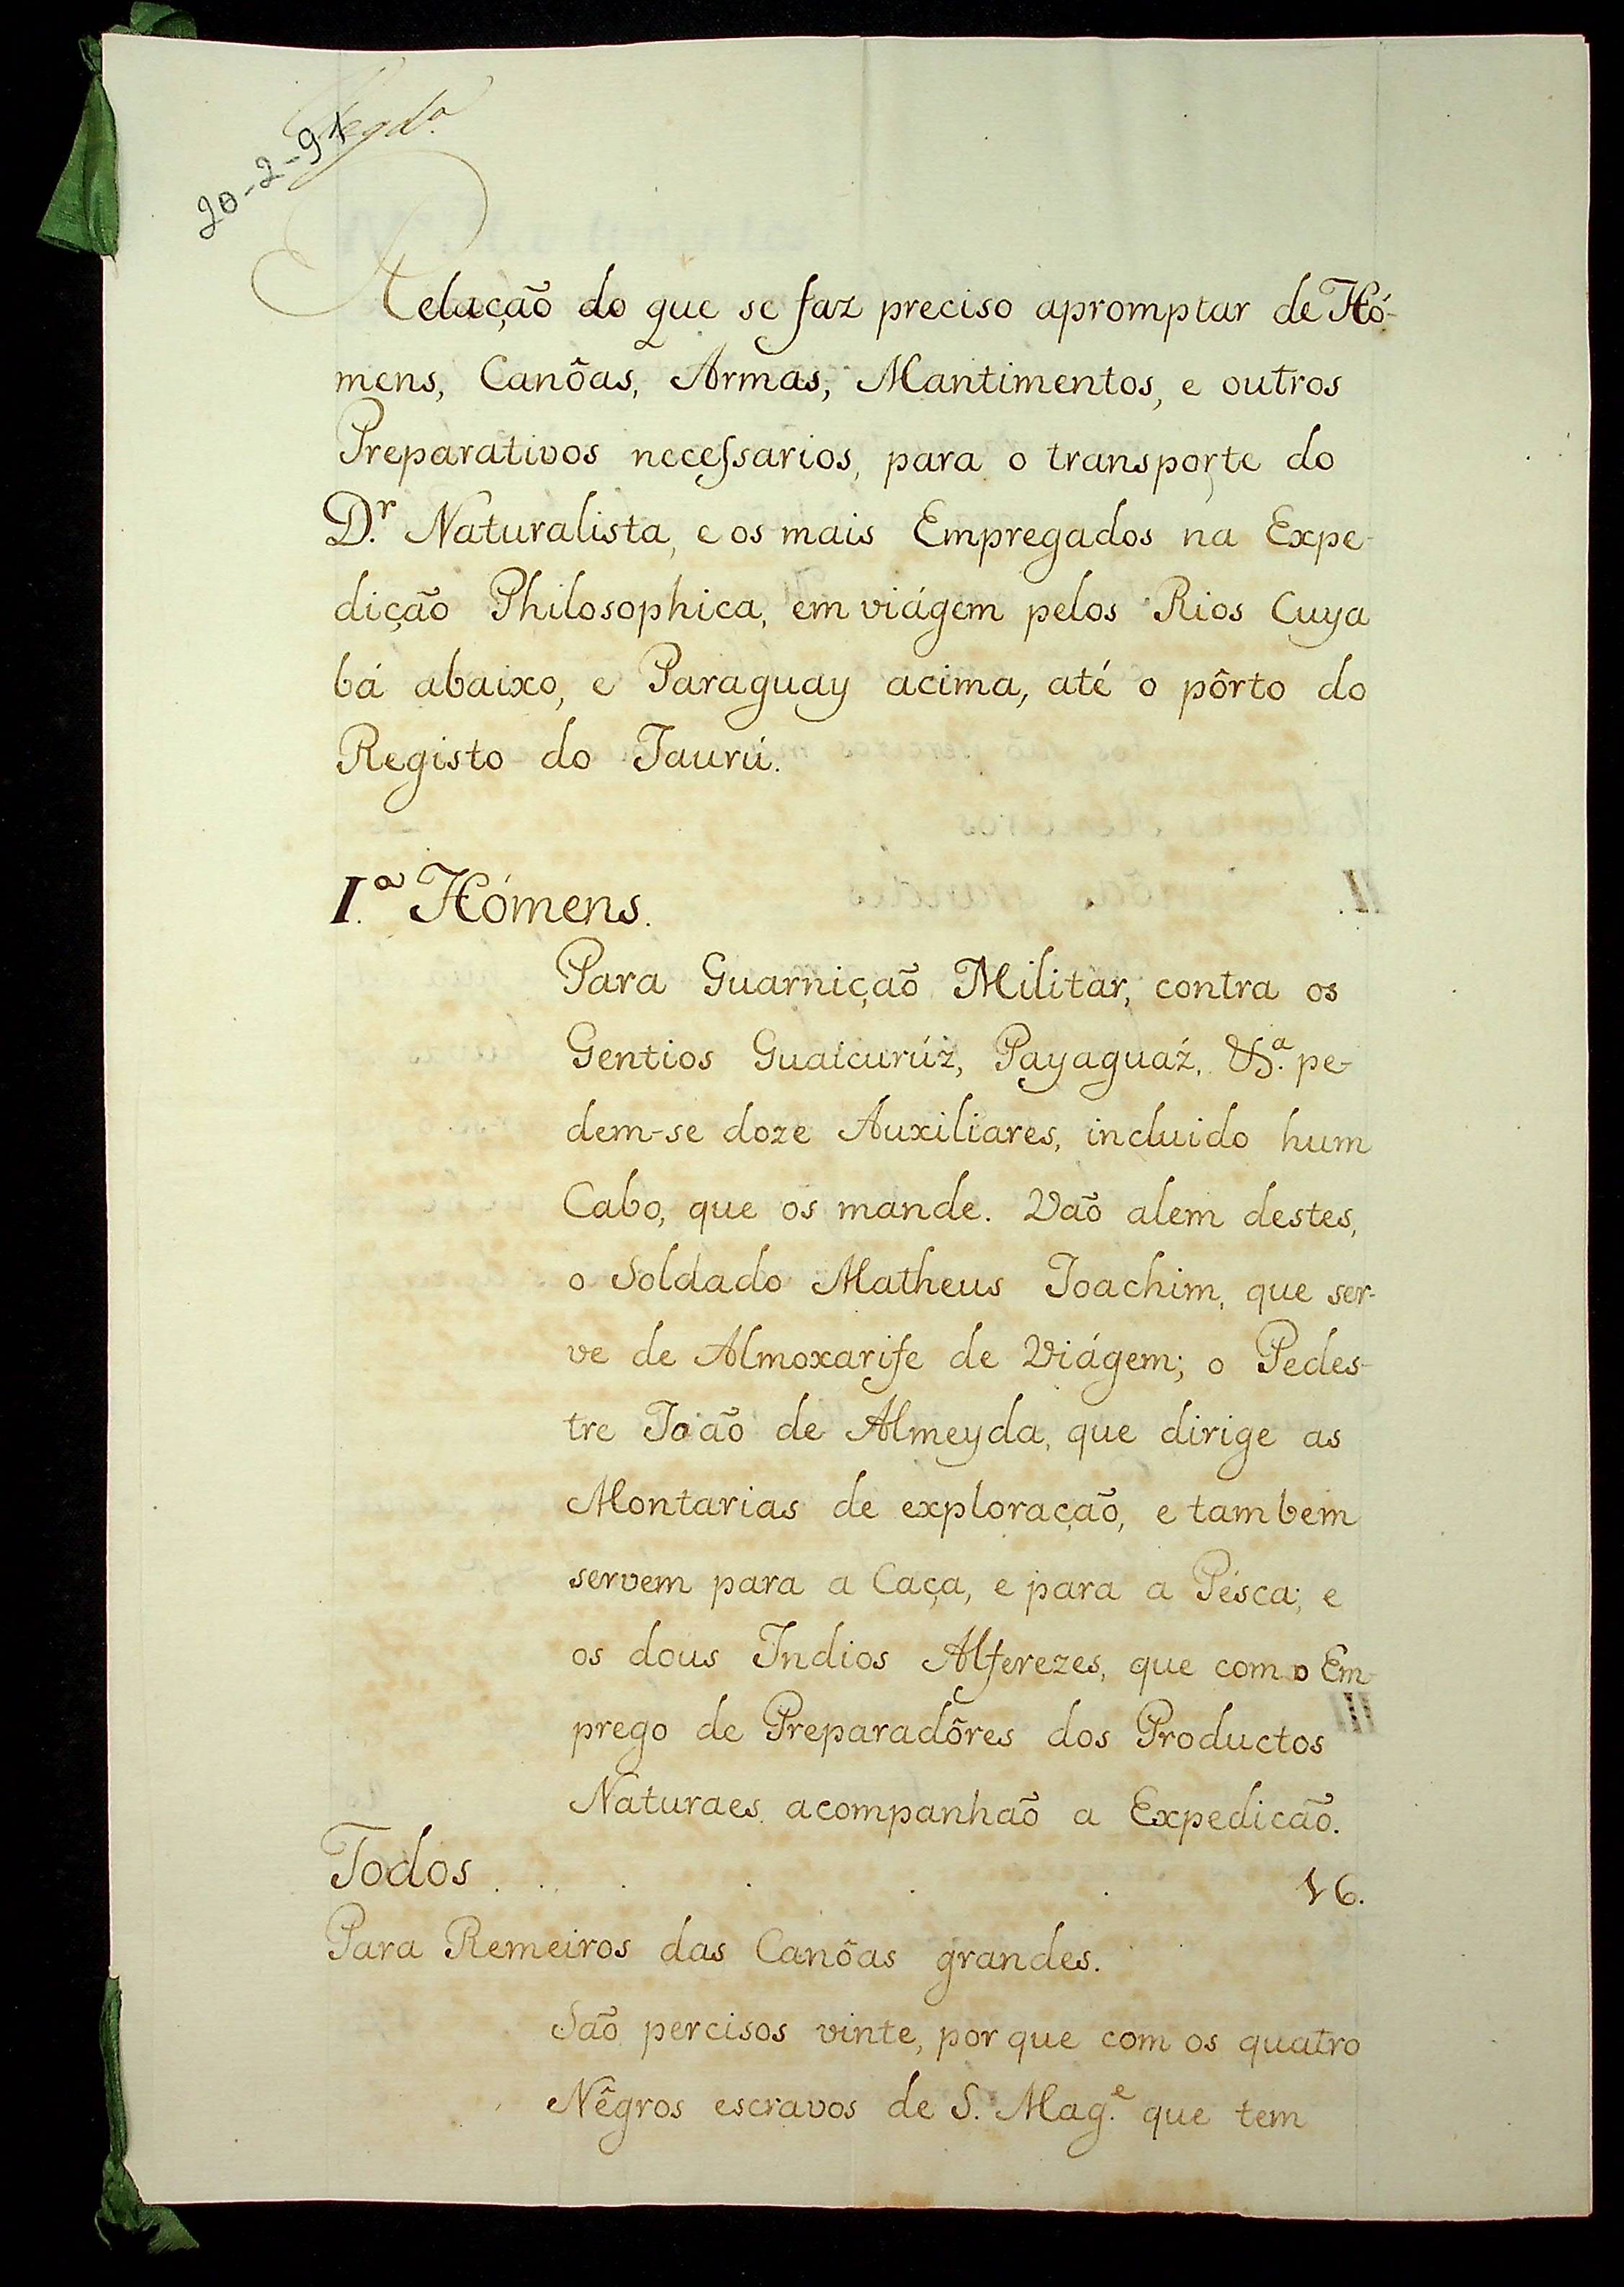 Regdo.
20-2-91
Relação do que se faz preciso apromptar de Hó-
mens, Canôas, Armas, Mantimentos, e outros
Preparativos neceſsarios, para o transporte do
D.r Naturalista, e os mais Empregados na Expe-
dição Philosophica, em viágem pelos Rios Cuya
bá abaixo, e Paraguay acima, até o pôrto do
Registo do Jaurú.
I.a Hómens.
Para Guarnição Militar, contra os
Gentios Guaicurúz, Payaguaź, &.a pe-
dem-se doze Auxiliares, incluido hum
Cabo, que os mande. Vaõ alem destes,
o Soldado Matheus Joachim, que ser-
ve de Almoxarife de Viágem; o Pedes-
tre Joaõ de Almeyda, que dirige as
Montarias de exploração, e tambem
servem para a Caça, e para a Pésca; e
os dous Indios Alferezes, que com o Em-
prego de Preparadôres dos Productos
Naturaes acompanhaõ a Expedicaõ.
Todos . . . . . . 16.
Para Remeiros das Canôas grandes.
Saõ percisos vinte, por que com os quatro
Nêgros escravos de S. Mag.e que tem